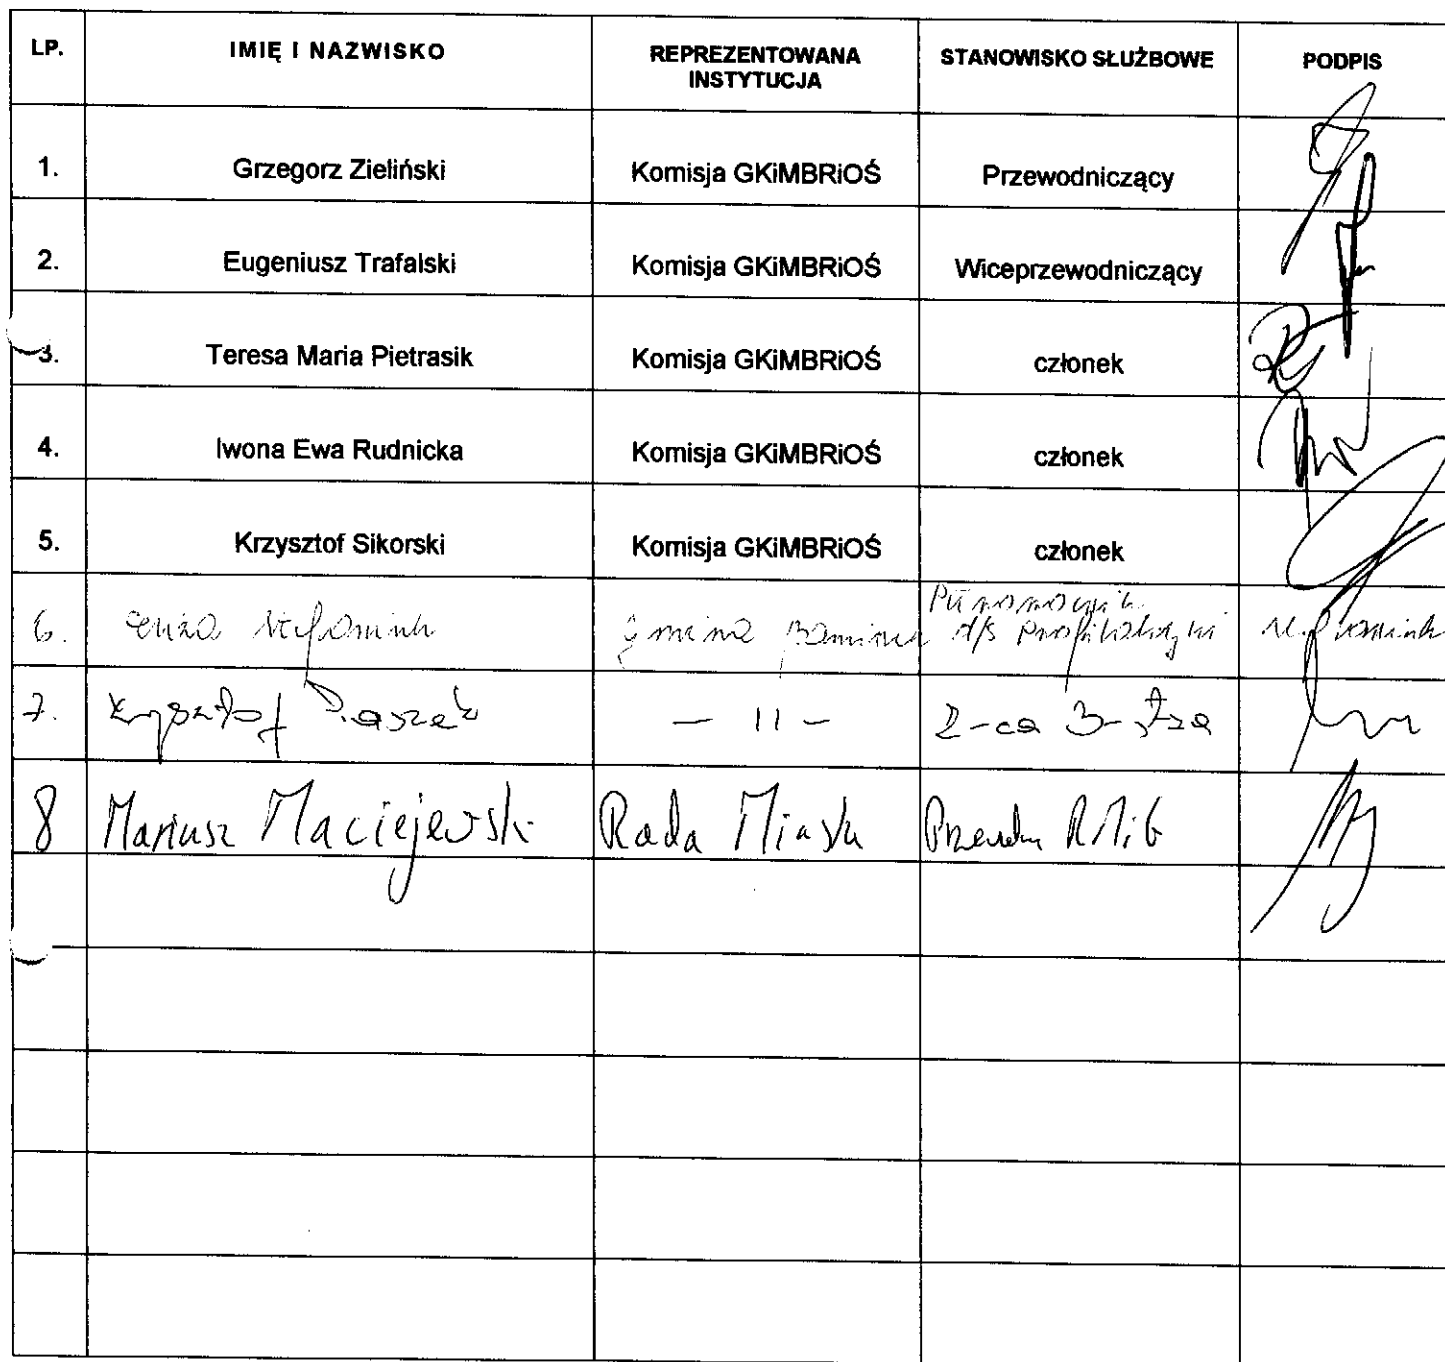 LP. IMIĘ I NAZWISKO REPREZENTOWANA INSTYTUCJA STANOWISKO SŁUŻBOWE PODPIS
1. Grzegorz Zieliński Komisja GKiMBRiOŚ Przewodniczący
2. Eugeniusz Trafalski Komisja GKiMBRiOŚ Wiceprzewodniczący
3. Teresa Maria Pietrasik Komisja GKiMBRiOŚ członek
4. Iwona Ewa Rudnicka Komisja GKiMBRiOŚ członek
5. Krzysztof Sikorski Komisja GKiMBRiOŚ członek
6. Gmina d/s
7. Krzysztof — 11 — Z-ca
8 Mariusz Maciejewski Rada Miasta